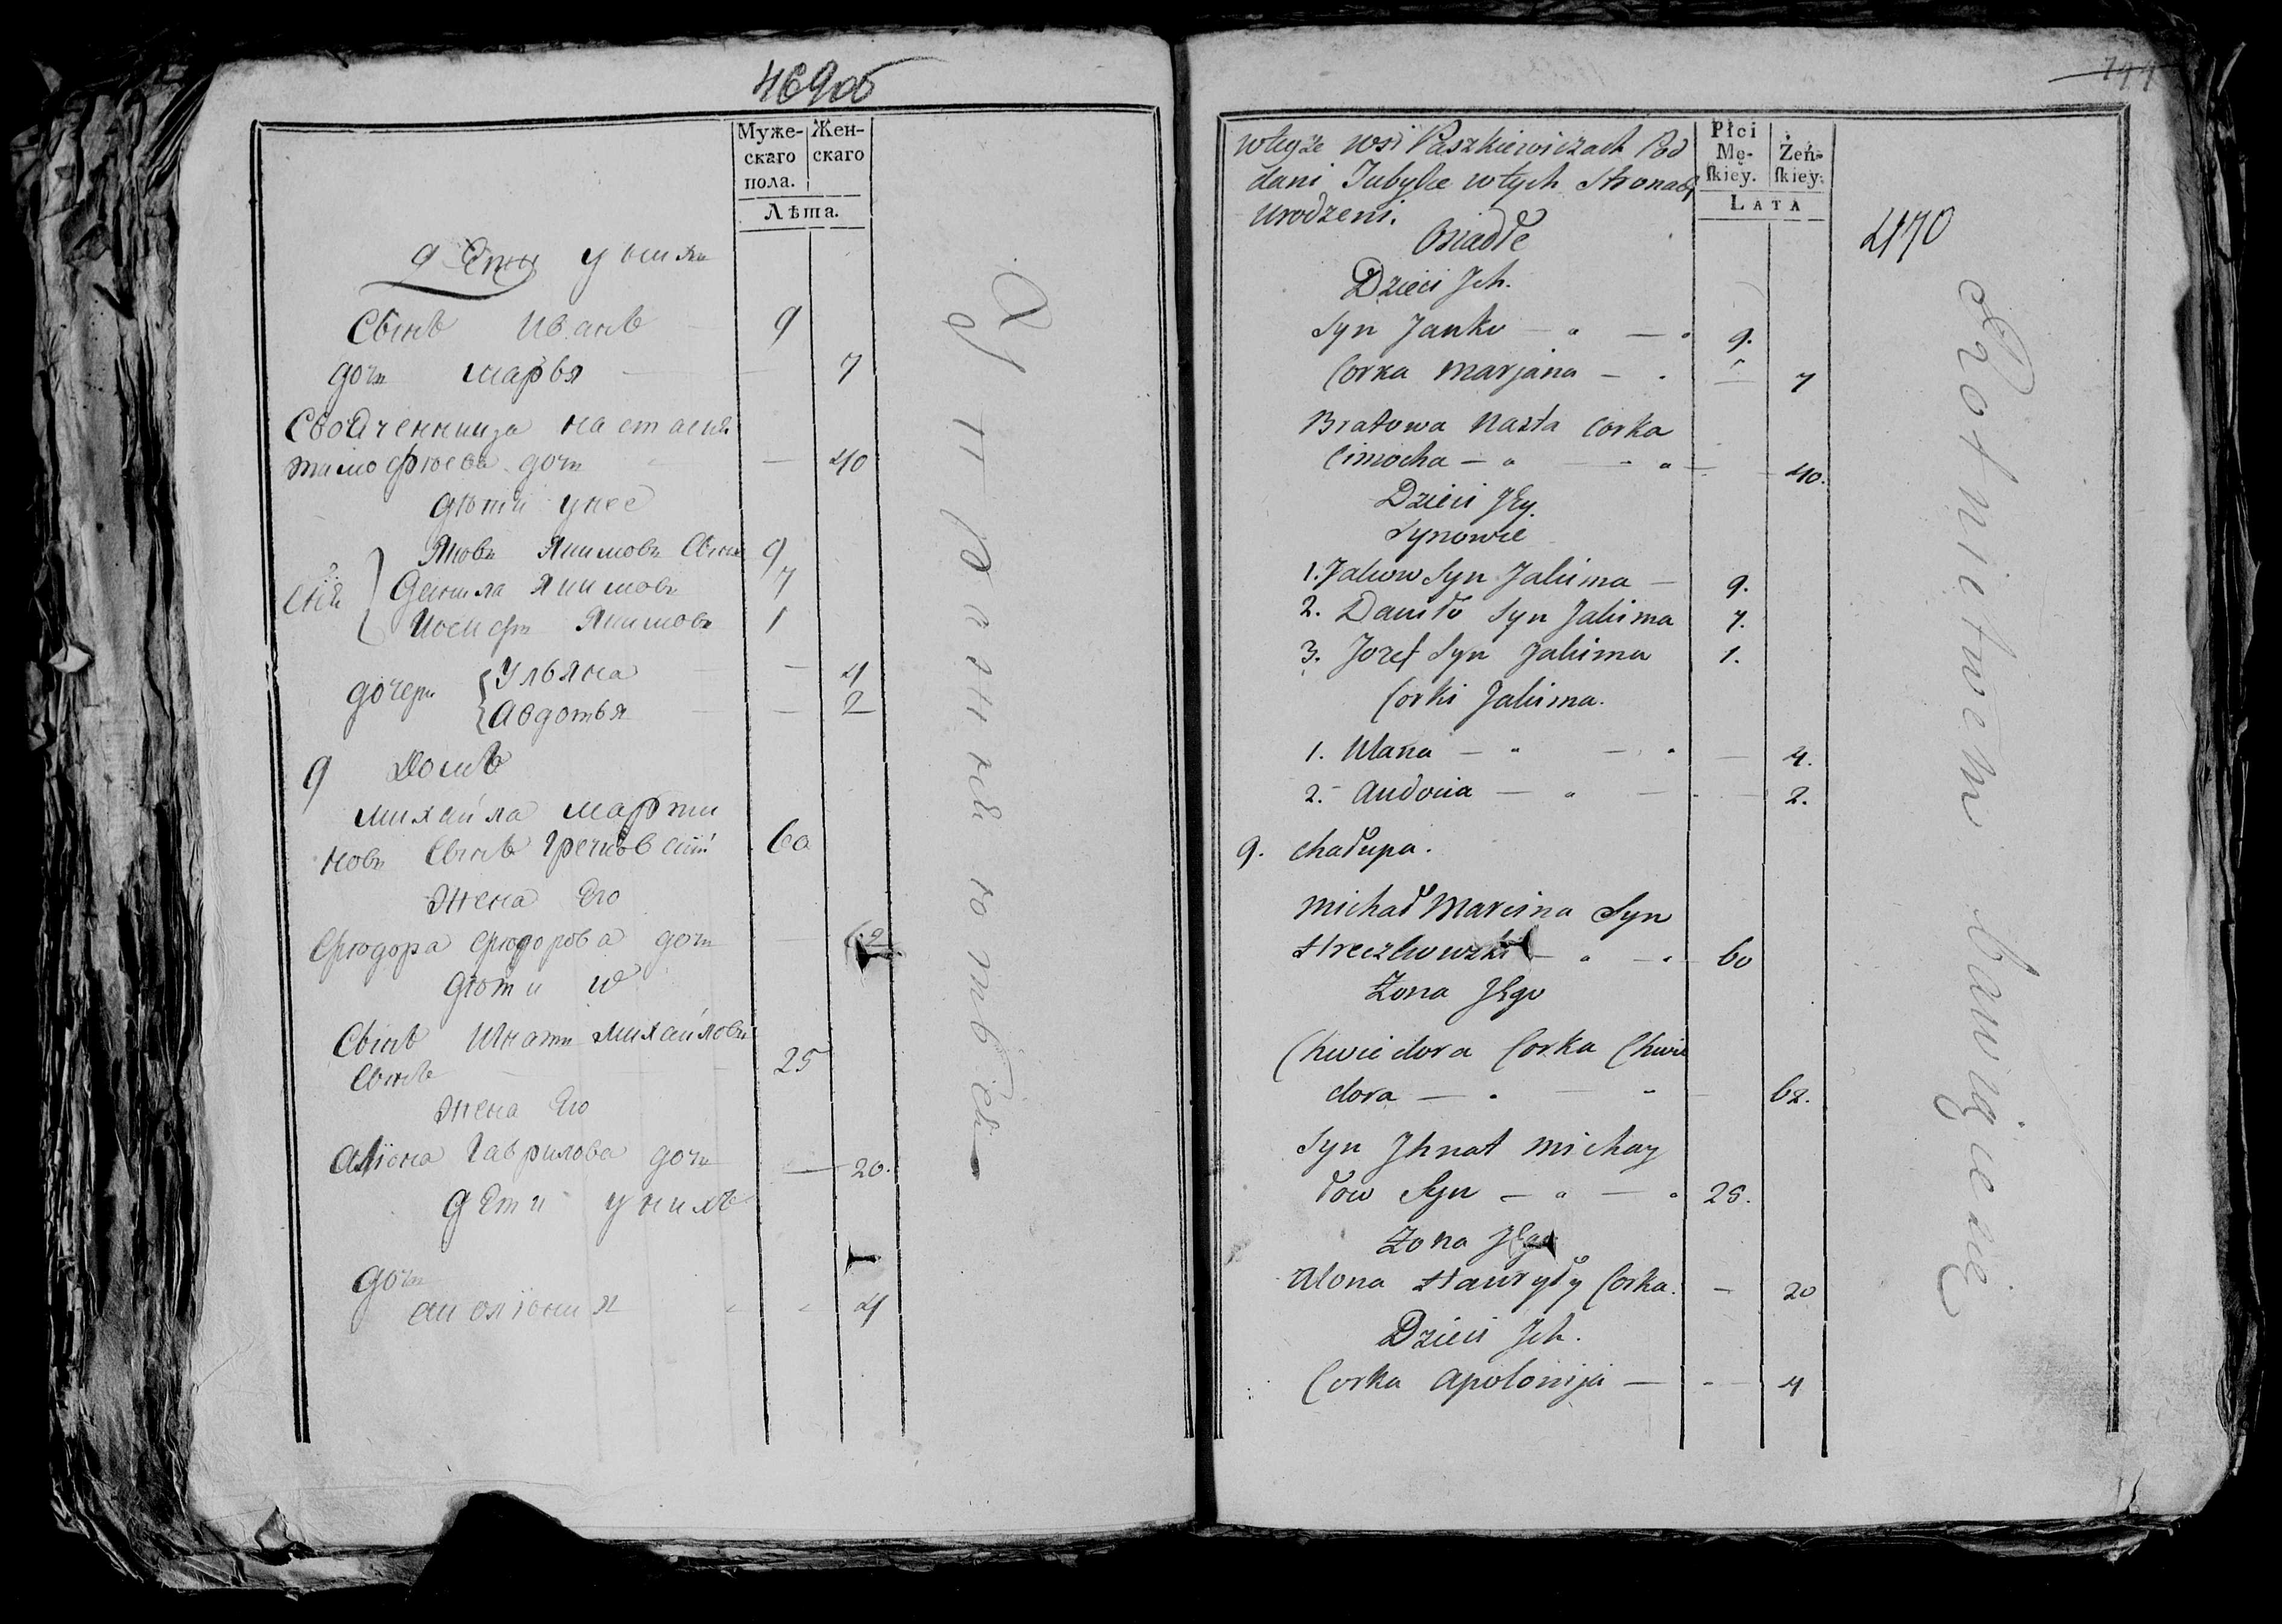 469об
Муже-
скаго
пола.
Жен-
скаго
Лѣта.
дѣти у нихъ
Сынъ Иванъ 9
дочь Марья 7
Своячениица Настасья
тимофѣева дочь 40
дѣти у нее
Яковъ Якимовъ Сынъ 9
Данила Якимовъ 7
Иосифъ Якимовъ 1
дочери Ульяна 4
Авдотья 2
9 Домъ
Михайла Марти
новъ Сынъ Гречковскій 60
Жена Его
Фіодора Фіодорова дочь 62
дѣти
Сынъ Игнатъ Михайловъ
Сынъ 25
Жена Его
Алиона Гаврилова дочь 20.
дѣти у нихъ
дочь
Аполіонія 4
w teyże wsi Paszkiewiczach Pod
dani Tubylce w tych Stronach
Urodzeni.
Osiadłe
Płci
Mę-
skiey.
Żeń-
skiey.
LATA
470
744
Dzieci Jch.
Syn Janko 9.
Corka Marjana 7
Bratowa Nasta Corka
Cimocha 40.
Dzieci Jey.
Synowie
1. Jakow Syn Jakima 9.
2. Daniło Syn Jakima 7.
3. Jozef Syn Jakima 1.
Corki Jakima.
1. Ulana 4.
2. Audocia 2.
9. Chałupa.
Michał Marcina Syn
Hreczkowski 60
Zona Jego
Chwiedora Corka Chwie
dora 62.
Syn Jhnat Michay
łow Syn 25.
Zona Jego
Alona Hawryły Corka. 20
Dzieci Jch.
Corka Apolonija 4